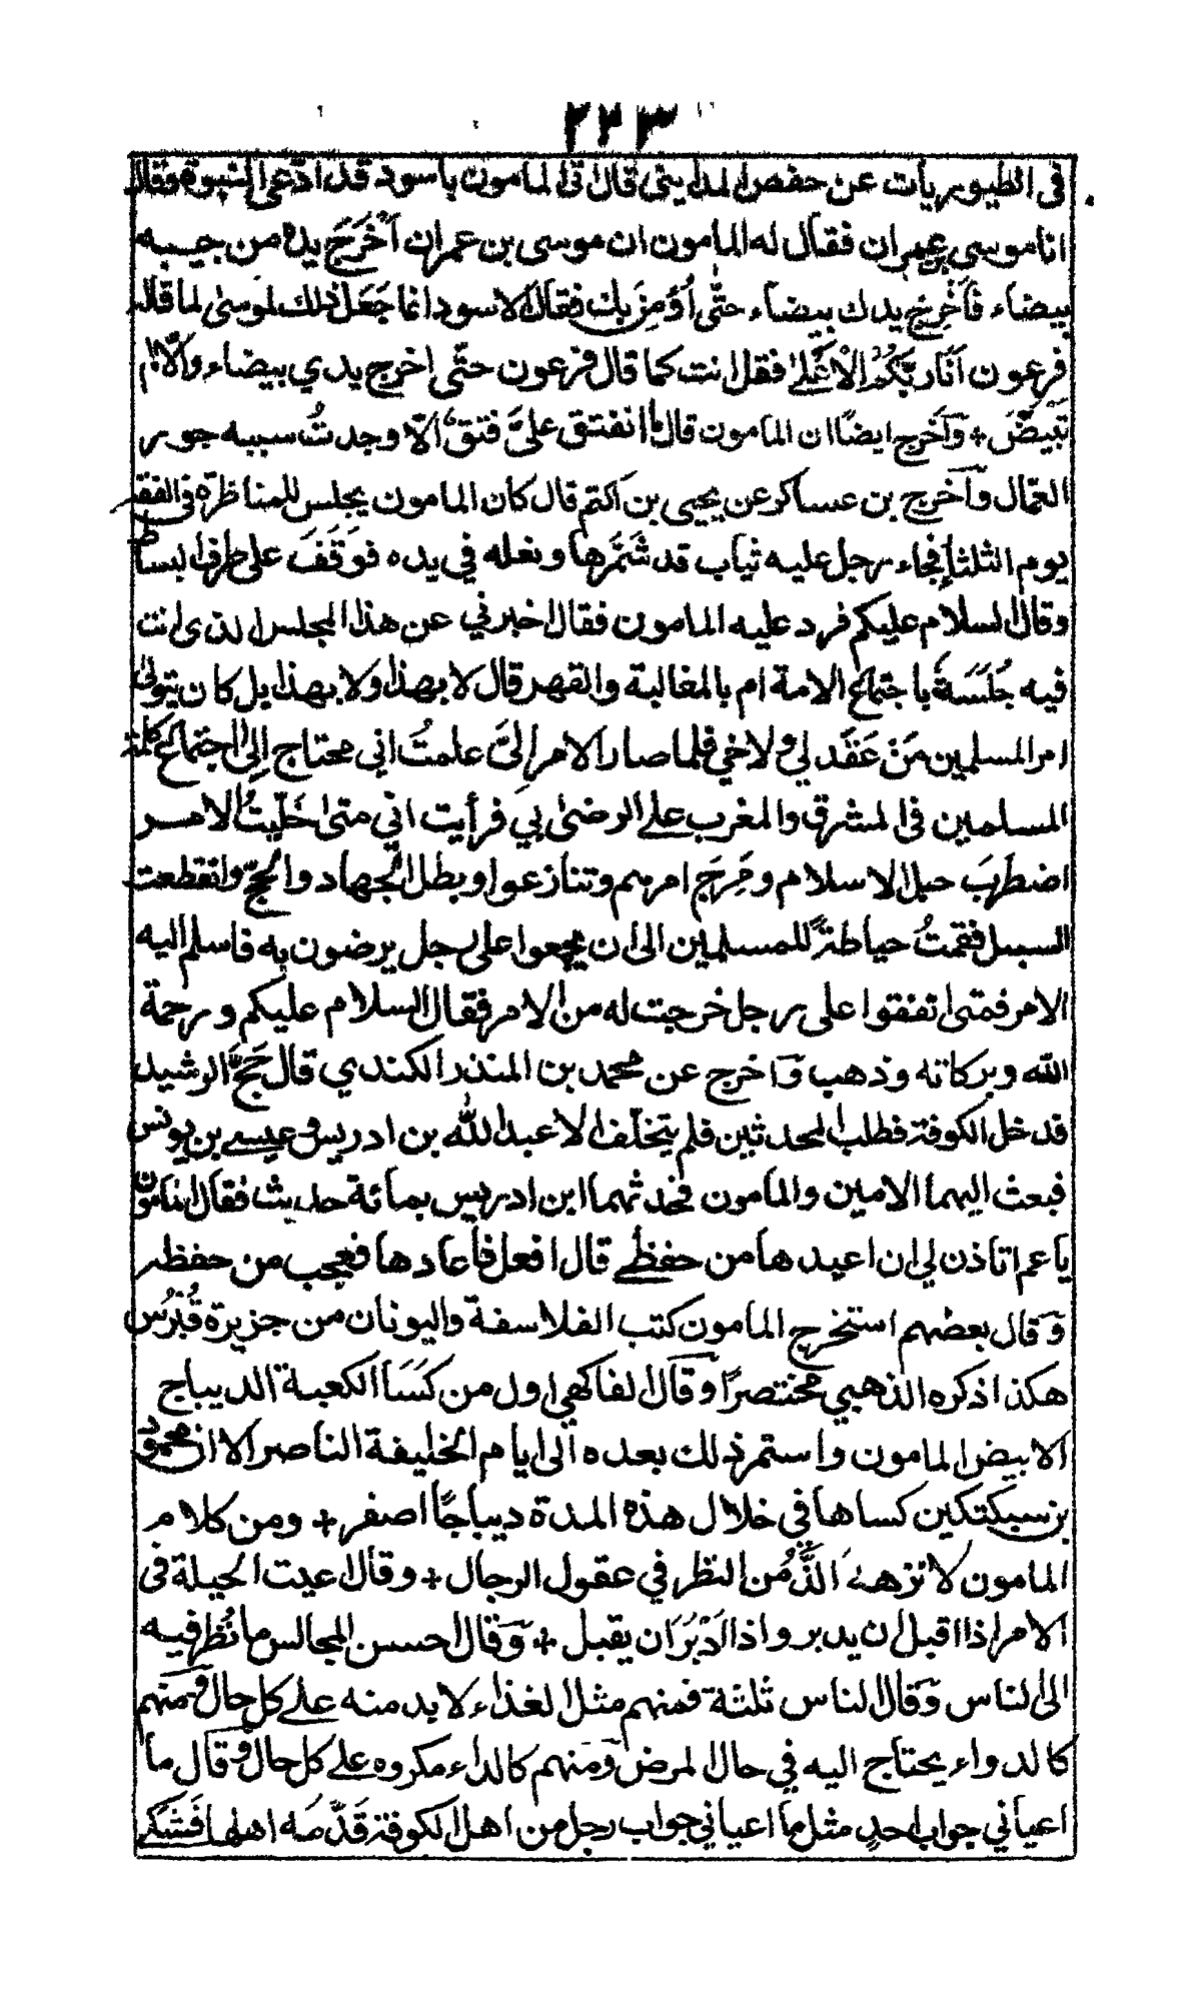 ٢٢٣
فى الطيوريات عن حفص المدايني قال اتى المامون باسود قد ادّعى النبوة وقال
انا موسى بن عمران فقال له المامون ان موسى بن عمران اَخْرَجَ يده من جيبه
بيضاء فاَخْرِج يدك بيضاء حتّٰى اُؤمِنَ بك فقال الاسود انما جَعَل ذلك لموسٰى لما قال له
فرعون اَنَا رَبُّكُمُ الْاَعْلٰى فقل انت كما قال فرعون حتّى اخرج يدي بيضاء والّا لم
تَبْيَضَّ + وَآخرج ايضًا ان المامون قال ما انفتق علىَّ فتق اِلّا وجدتُ سببه جور
العمّال وآخرج بن عساكر عن يحيى بن اكتم قال كان المامون يجلس للمناظرة فى الفقه
يوم الثلثاء فجاء رجل عليه ثياب قد شَمَّرها ونعله في يده فوَقَفَ على طرف البساط
وقال السلام عليكم فرد عليه المامون فقال اخبرني عن هذا المجلس الذى انت
فيه جَلَسَة باجتماع الامة ام بالمغالبة والقهر قال لا بهذا ولا بهذا بل كان يتولى
امر المسلمين مَنْ عَقَد لي ولاخي فلما صار الامر اِلىَّ علمتُ اني محتاج اِلىٰ اجتماع كلمة
المسلمين فى المشرق والمغرب على الرضٰى بي فرأيت انّي متى خَلّيتُ الامر
اضطَرَبَ حبل الاسلام ومَرِجَ امرهم وتنازعوا وبطل الجهاد والحجّ وانقطعت
السبل فقمتُ حياطةً للمسلمين الى ان يجمعوا على رجل يرضون به فاسلم اليه
الامر فمتى اتفقوا على رجل خرجت له من الامر فقال السلام عليكم ورحمة
الله وبركاته وذهب وَآخرج عن محمد بن المنذر الكندي قال حَجَّ الرشيد
فدخل الكوفة فطلب المحدثين فلم يتخلّف الا عبد الله بن ادريس وعيسے بن يونس
فبعث اليهما الامين والمامون فحدثهما ابن ادريس بمائة حديث فقال المامون
يا عم اتاذن لي ان اعيدها من حفظے قال افعل فاعادها فعجب من حفظه
وَقال بعضهم استخرج المامون كتب الفلاسفة واليونان من جزيرة قُبْرُس
هكذا ذكره الذهبي مختصرًا وقال الفاكهى اول من كَسَا الكعبة الديباج
الابيض المامون واستمر ذلك بعده الى ايام الخليفة الناصر الا ان محمود
بن سبكتكين كساها في خلال هذه المدة ديباجًا اصفر + ومن كلام
المامون لا نزهة اَلَذُّ من النظر في عقول الرجال + وقال اعيت الحيلة فى
الامر اذا اقبل ان يدبر واذا اَدْبَرَ ان يقبل + وَقال احسن المجالس ما نُظر فيه
الى الناس وَقال الناس ثلثة فمنهم مثل الغذاء لا بد منه علے كل حال وَمنهم
كالدواء يحتاج اليه في حال المرض وَمنهم كالداء مكروه علے كل حال وقال ما
اعياني جواب احد مثل ما اعياني جواب رجل من اهل الكوفة قَدَّمَه اهلها فَشَكے